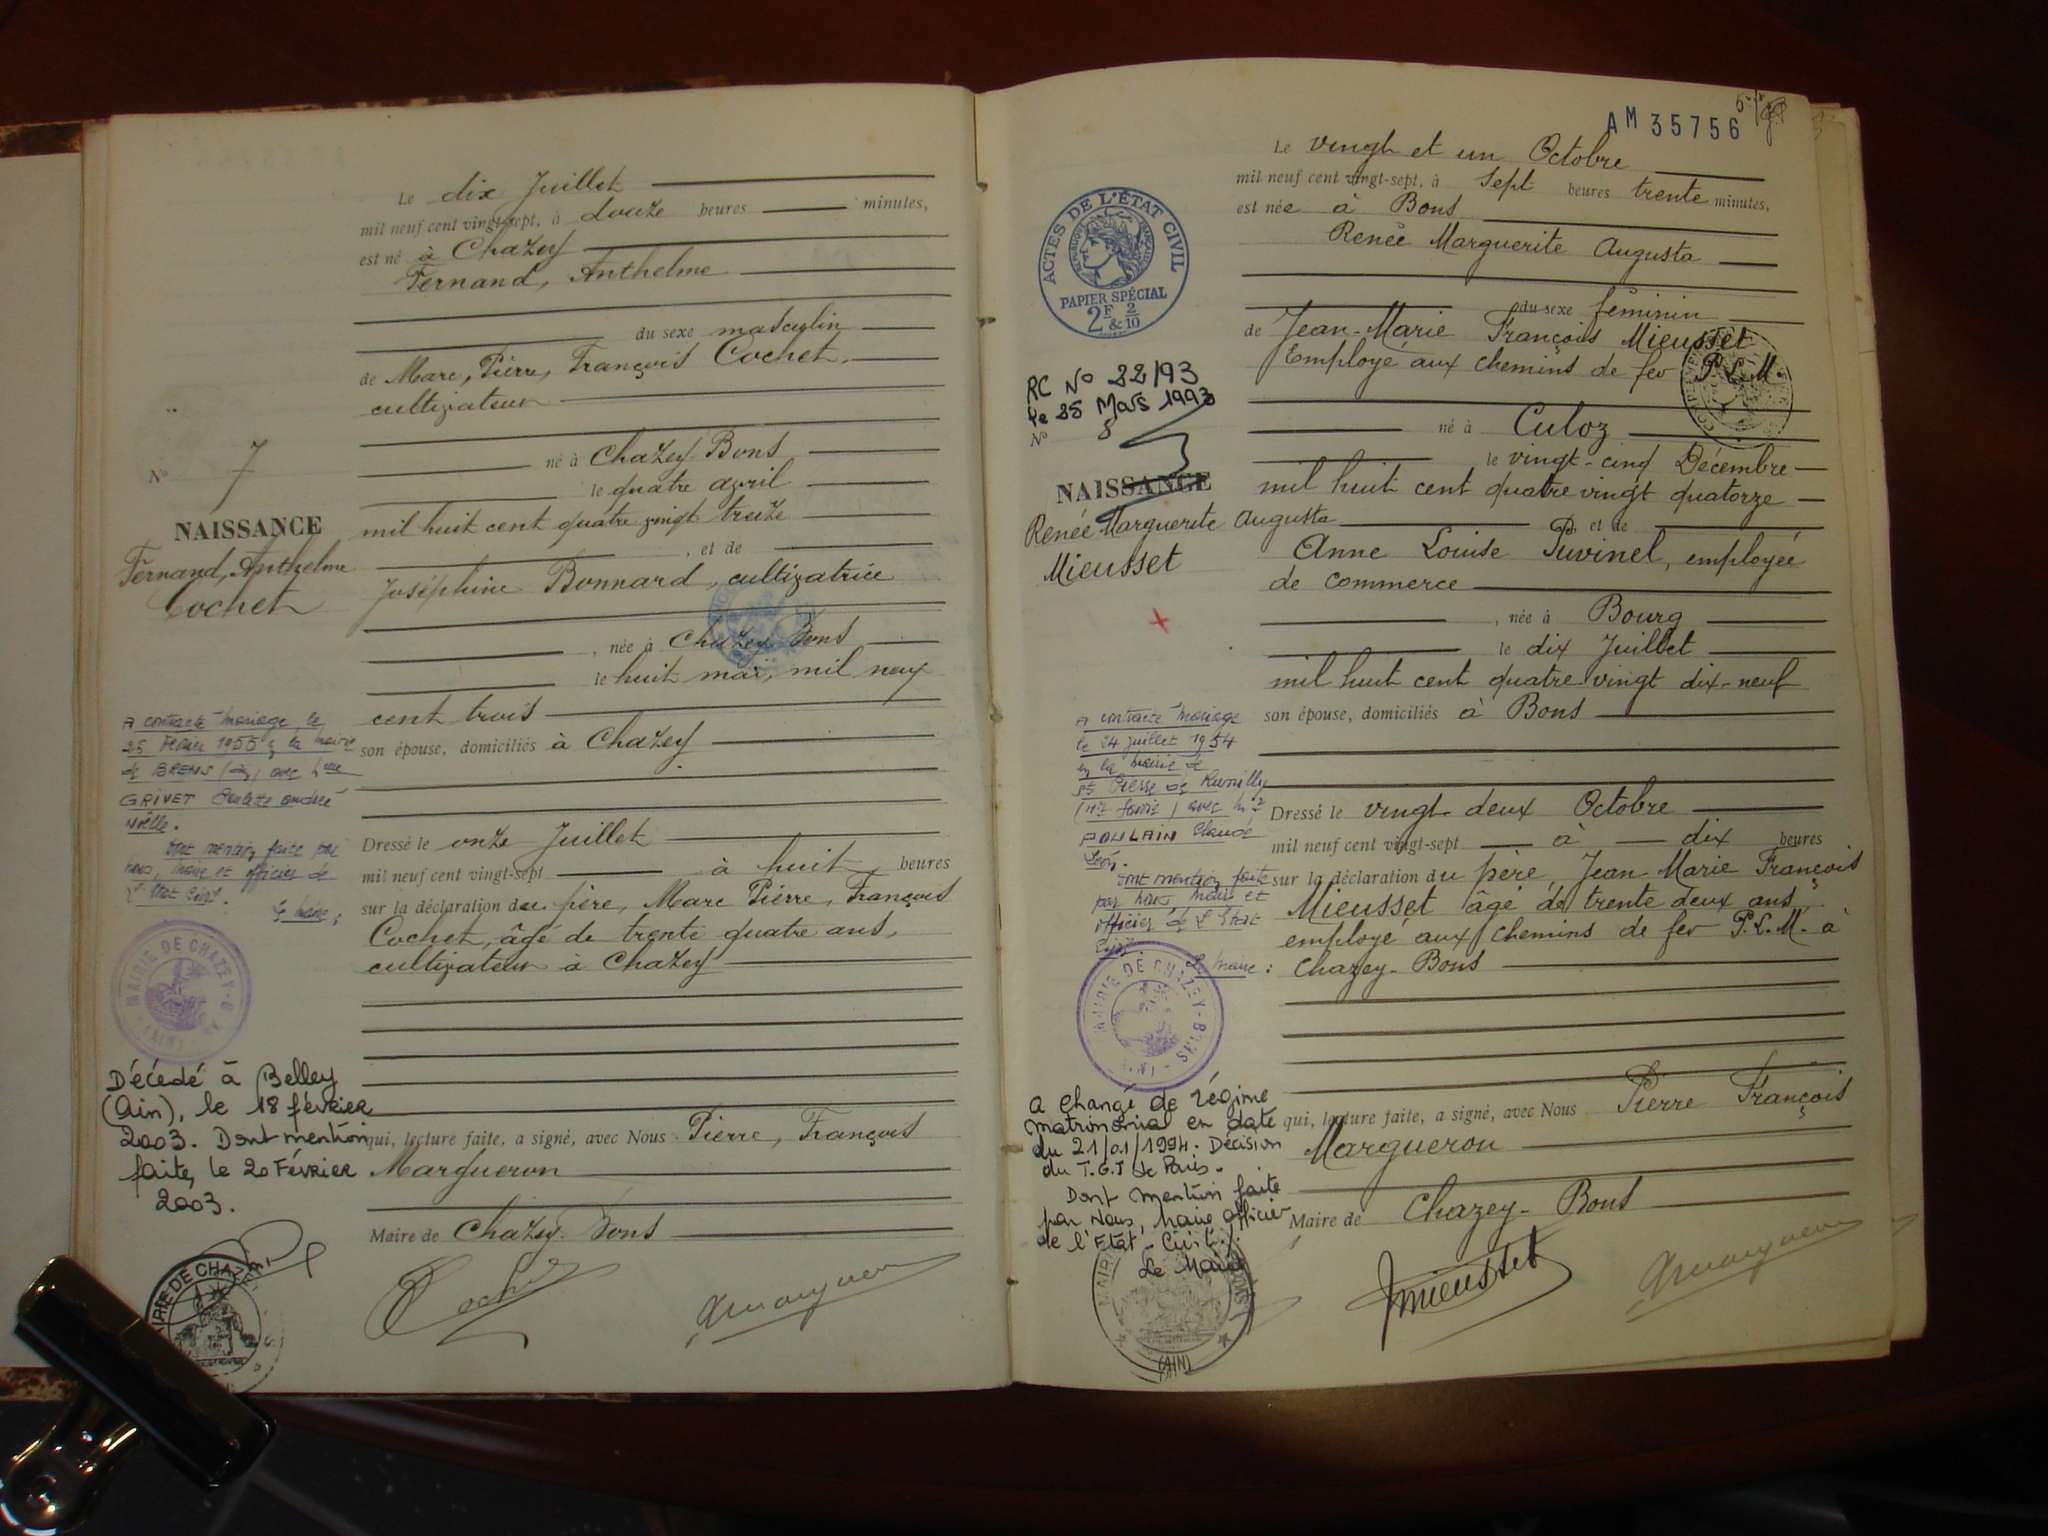 Le dix Juillet
mil neuf cent vingt-sept, à douze heures minutes,
est né à Chazey
Fernand, Anthelme
du sexe masculin
de Marc, Pierre, François Cochet,
cultivateur
né à Chazey-Bons
le quatre avril
mil huit cent quatre vingt treize
, et de
Joséphine Bonnard, cultivatrice
, née à Chazey Bons
le huit mai, mil neuf
cent trois
son épouse, domiciliés à Chazey
Dressé le onze Juillet
mil neuf cent vingt-sept à huit heures
sur la déclaration du père, Marc Pierre, François
Cochet, âgé de trente quatre ans,
cultivateur à Chazey
qui, lecture faite, a signé, avec Nous Pierre, François
Margueron
Maire de Chazey-Bons
N° 7
NAISSANCE
Fernand, Anthelme
Cochet
A contracté mariage, le
25 1955 à la mairie
de BRENS (Ain) avec
GRIVET
Noëlle.
Dont mention faite par
nous, maire et officier de
l'Etat Civil.
Le maire,
MAIRIE DE CHAZEY-B
Décédé à Belley
(Ain), le 18 février
2003. Dont mention
faite, le 20 Février
2003.
MAIRIE DE CHAZEY
AM 35756
Le vingt et un Octobre
mil neuf cent vingt-sept, à sept heures trente minutes,
est née à Bons
Renée Marguerite Augusta
du sexe féminin
de Jean-Marie François Mieusset
Employé aux chemins de fer P.L.M.
né à Culoz
le vingt-cinq Décembre
mil huit cent quatre vingt quatorze
, et de
Anne Louise Puvinel, employée
de commerce
, née à Bourg
le dix Juillet
mil huit cent quatre-vingt dix-neuf
son épouse, domiciliés à Bons
Dressé le vingt-deux Octobre
mil neuf cent vingt-sept à dix heures
sur la déclaration du père, Jean Marie François
Mieusset âgé de trente deux ans
employé aux chemins de fer P.L.M. à
Chazey-Bons
qui, lecture faite, a signé, avec Nous Pierre François
Marguerou
Maire de Chazey-Bons
Mieusset
ACTES DE L'ÉTAT CIVIL
PAPIER SPÉCIAL
2F & 2/10
RC N° 22/93
Le 25 Mars 1993
N° 8
NAISSANCE
Renée Marguerite Augusta
Mieusset
A contracté mariage
le 24 juillet 1954
en la mairie de
St Pierre de Rumilly
(Hte Savoie) avec Mr
POULAIN Claude
Dont mention faite
par nous, maire et
officier de l'Etat
Civil
Le maire :
MAIRIE DE CHAZEY-BONS (AIN)
a changé de régime
matrimonial en date
du 21/01/1994. Décision
du T.G.I de Paris.
Dont mention faite
par Nous, Maire officier
de l'Etat-Civil.
Le Maire
(AIN)